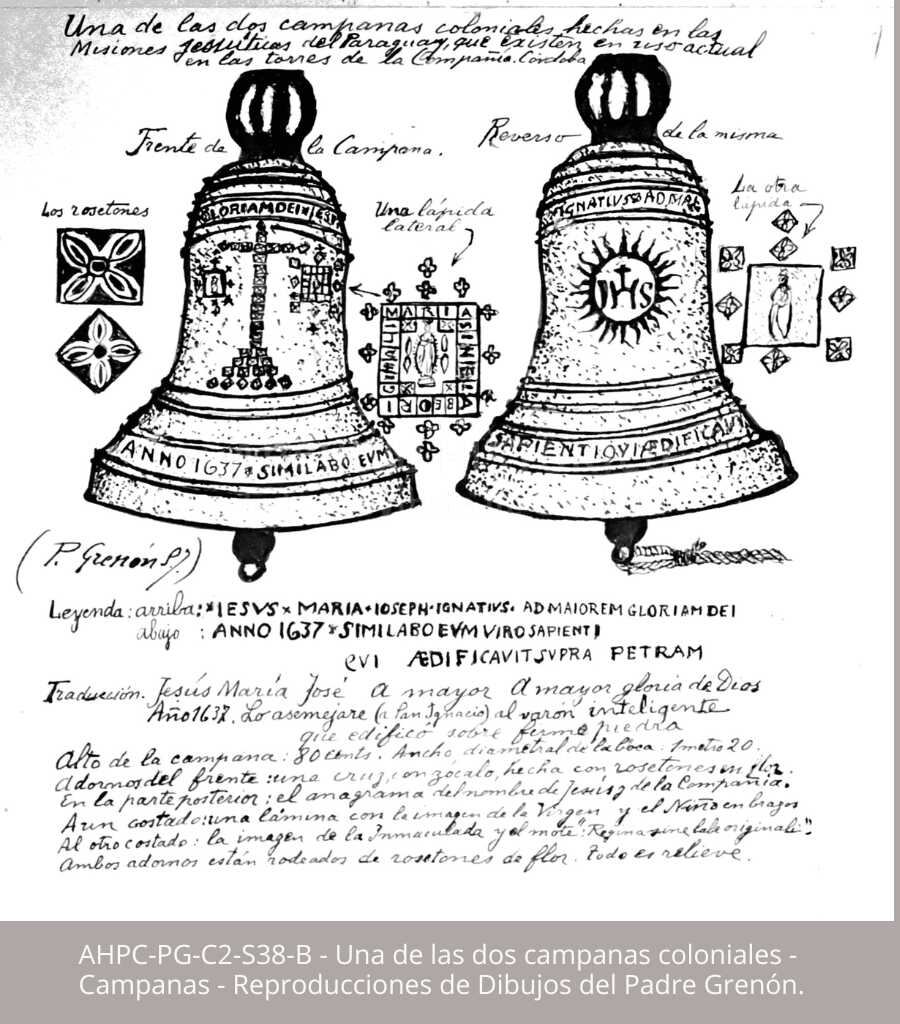 Una de las dos campanas coloniales, hechas en las
Misiones jesuíticas del Paraguay, que existen en uso actual
en las torres de la Compañía. Córdoba
Frente de la Campana.
Reverso de la misma
Los rosetones
Una lápida
lateral
La otra
lápida
GLORIAM DEI IESV
IGNATIVS AD MA
JHS
MARIA
ANNO 1637 * SIMILABO EVM
SAPIENTI QVI ÆDIFICAVI
(P. Grenón S.J.)
Leyenda: arriba: *IESVS x MARIA · IOSEPH · IGNATIVS · AD MAIOREM GLORIAM DEI
abajo : ANNO 1637 * SIMILABO EVM VIRO SAPIENTI
QVI ÆDIFICAVIT SVPRA PETRAM
Traducción. Jesús María José A mayor A mayor gloria de Dios
Año 1637. Lo asemejare (a San Ignacio) al varón inteligente
que edificó sobre firme piedra
Alto de la campana: 80 cents. Ancho, diametral de la boca: 1 metro 20.
Adornos del frente: una cruz, con zócalo, hecha con rosetones en flor.
En la parte posterior: el anagrama del nombre de Jesús y de la Compañía.
A un costado: una lámina con la imagen de la Virgen y el Niño en brazos
Al otro costado: la imagen de la Inmaculada y el mote: "Regina sine labe originali".
Ambos adornos están rodeados de rosetones de flor. Todo es relieve.
AHPC-PG-C2-S38-B - Una de las dos campanas coloniales -
Campanas - Reproducciones de Dibujos del Padre Grenón.